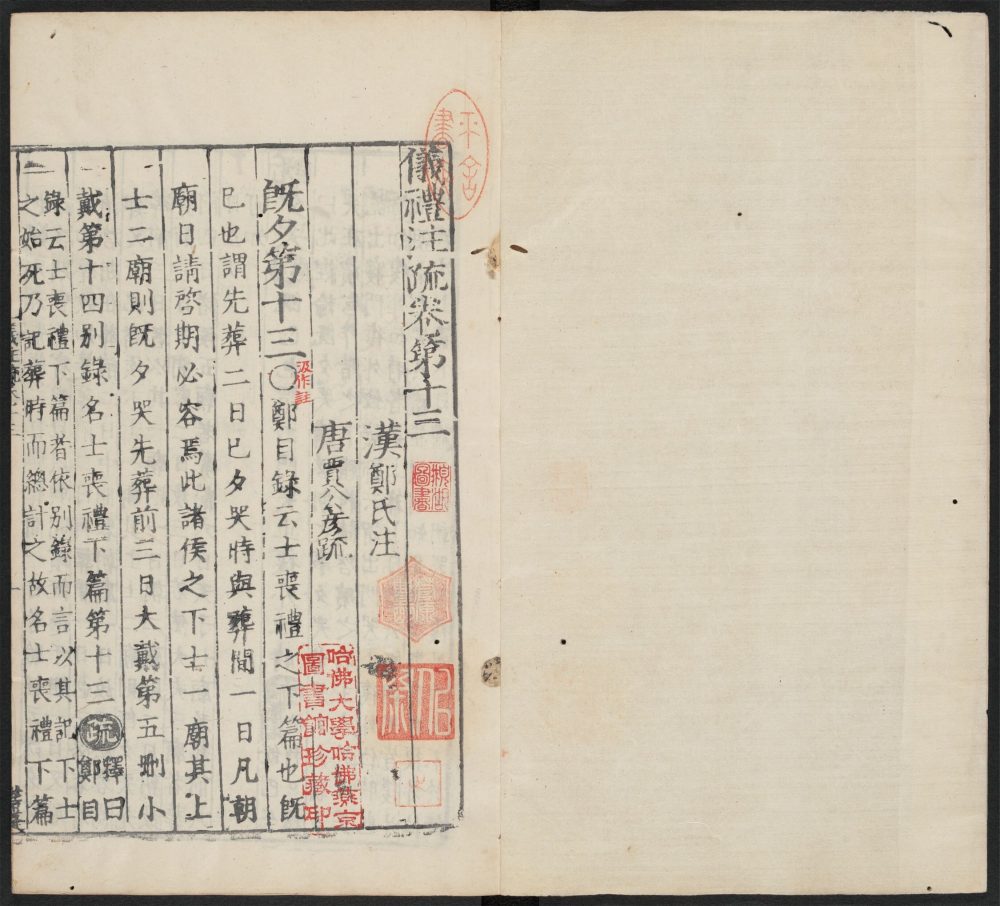 儀禮注疏卷第十三
漢鄭氏注
唐賈公彥疏
既夕第十三○鄭目錄云士喪禮之下篇也既
汲作註
已也謂先葬二日已夕哭時與葬間一日凡朝
廟日請啓期必容焉此諸侯之下士一廟其上
士二廟則既夕哭先葬前三日大戴第五刪小
戴第十四別錄名士喪禮下篇第十三疏釋曰鄭目
錄云士喪禮下篇者依別錄而言以其記下士
之始死乃記葬時而總計之故名士喪禮下篇
哈佛大學哈佛燕京
圖書館珍藏印